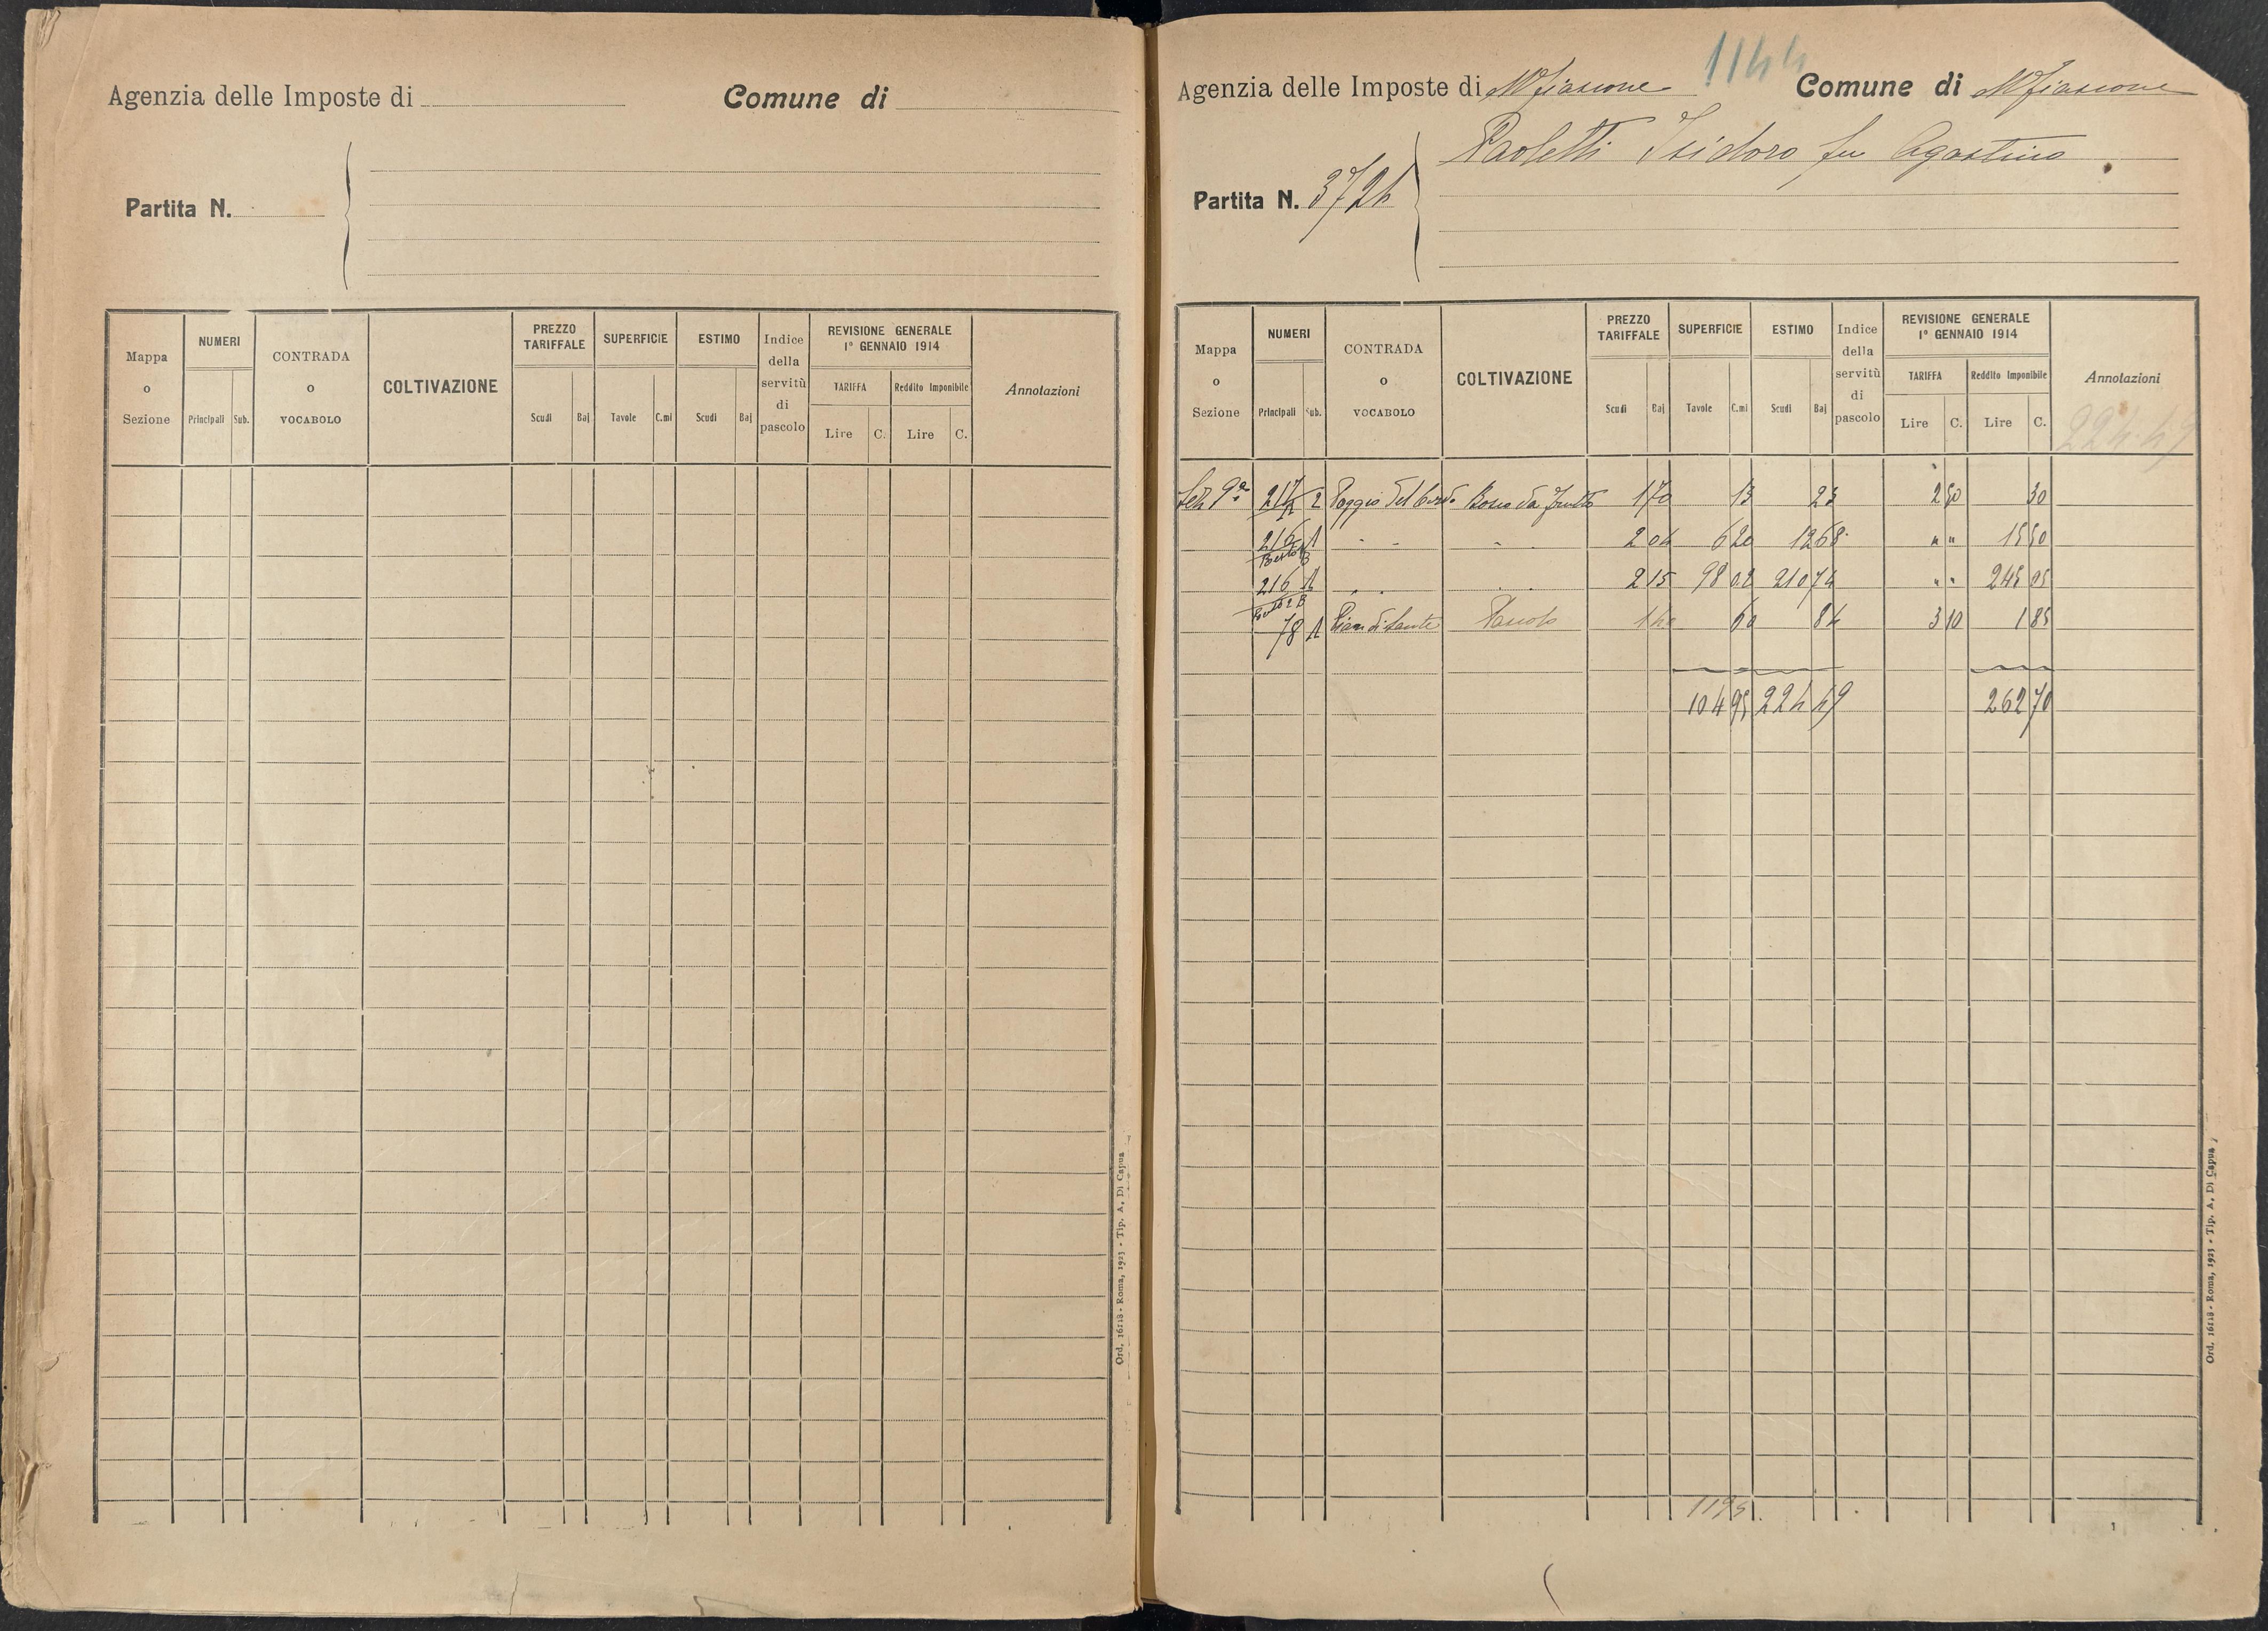 Agenzia delle Imposte di
Comune di
Partita N.
Mappa o Sezione
NUMERI
Principali
Sub.
CONTRADA o VOCABOLO
COLTIVAZIONE
PREZZO TARIFFALE
Scudi
Baj
SUPERFICIE
Tavole
C.mi
ESTIMO
Scudi
Baj
Indice della servitù di pascolo
REVISIONE GENERALE
1º GENNAIO 1914
TARIFFA
Reddito Imponibile
Lire
C.
Lire
C.
Annotazioni
Ord. 16118 - Roma, 1923 - Tip. A. Di Capua
1144
Agenzia delle Imposte di Mfiascone
Comune di Mfiascone
Partita N. 3724
Paoletti Isidoro fu Agostino
Mappa o Sezione
NUMERI
Principali
Sub.
CONTRADA o VOCABOLO
COLTIVAZIONE
PREZZO TARIFFALE
Scudi
Baj
SUPERFICIE
Tavole
C.mi
ESTIMO
Scudi
Baj
Indice della servitù di pascolo
REVISIONE GENERALE
1º GENNAIO 1914
TARIFFA
Reddito Imponibile
Lire
C.
Lire
C.
Annotazioni
224.49
Sez 9ª 2 Poggio del Bosco da frutto 1 70 13 23 2 50 30
216 1 " " " 2 04 6 20 12 68 " " 15 50
216 " " " 2 15 98 02 210 74 " " 245 05
78 1 Pian di Sante Pascolo 1 40 60 84 3 10 1 85
104 95 224 49 262 70
1195
1
Ord. 16118 - Roma, 1923 - Tip. A. Di Capua